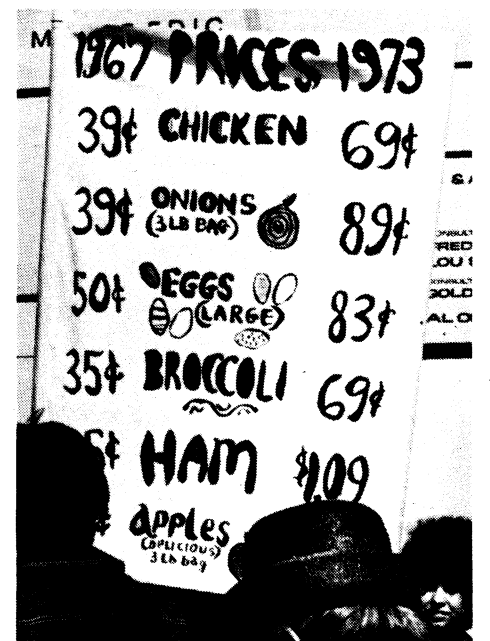 1967 PRICES 1973
39¢ CHICKEN 69¢
39¢ ONIONS 89¢
(3 LB BAG)
50¢ EGGS 83¢
(LARGE)
35¢ BROCCOLI 69¢
HAM $1.09
apples
(DELICIOUS)
3 Lb bag